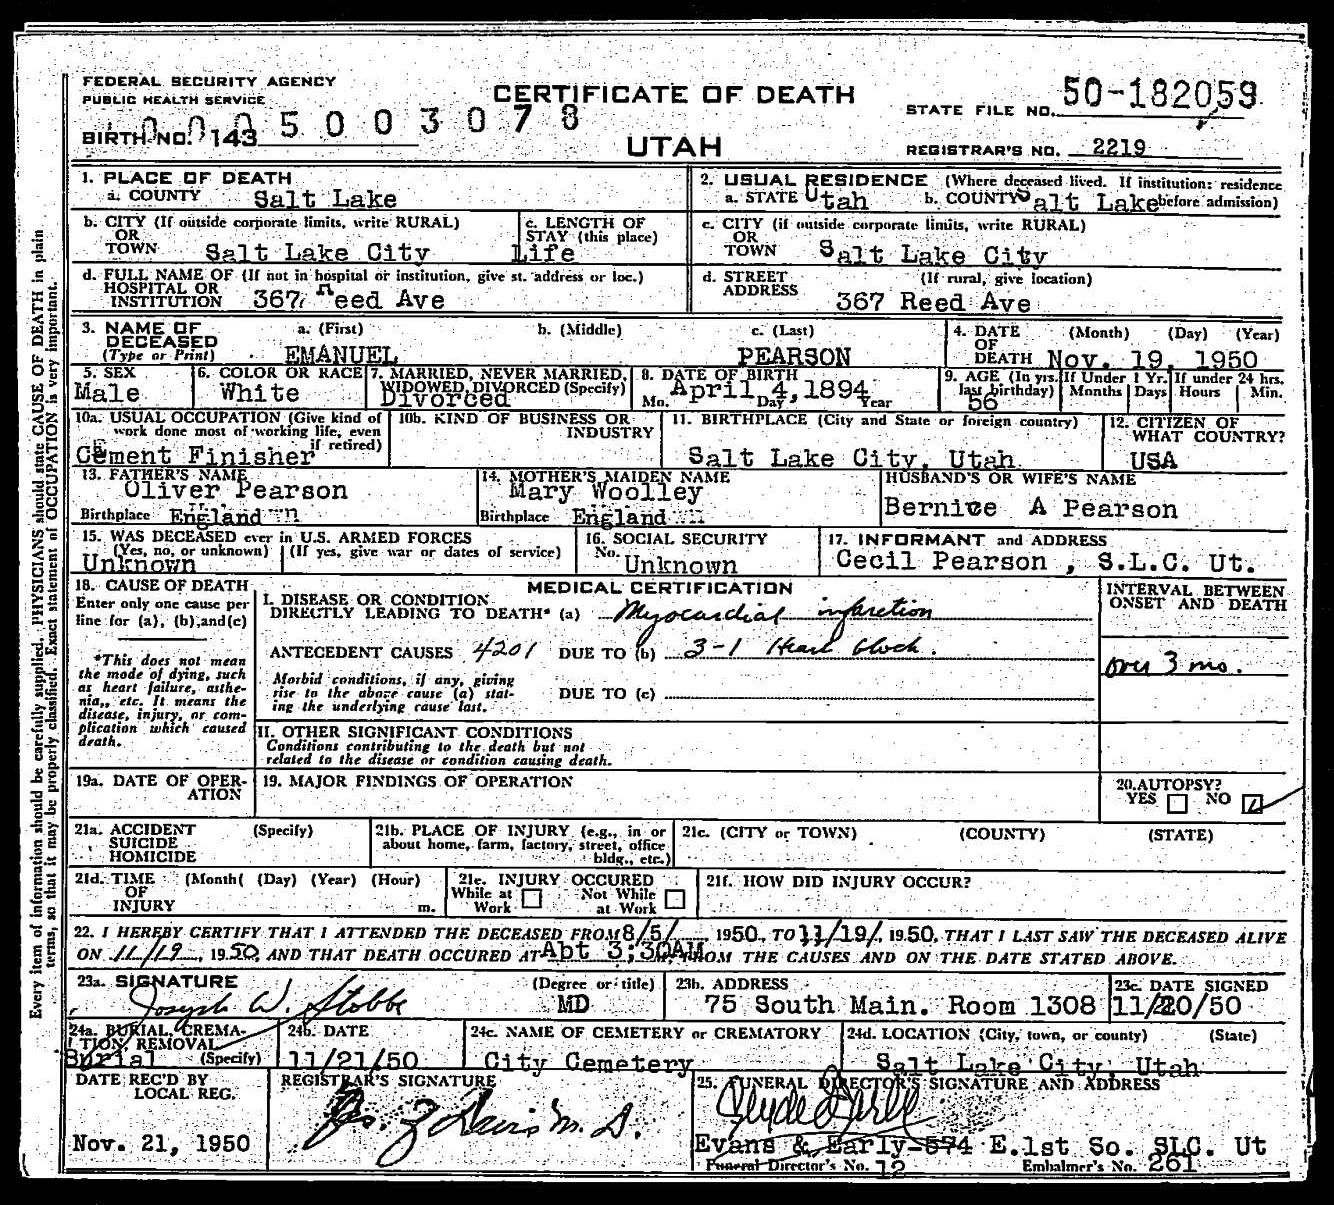 FEDERAL SECURITY AGENCY
PUBLIC HEALTH SERVICE
CERTIFICATE OF DEATH
STATE FILE NO. 50-182059
BIRTH NO. 143
005003078
UTAH
REGISTRAR'S NO. 2219
1. PLACE OF DEATH
a. COUNTY Salt Lake
2. USUAL RESIDENCE (Where deceased lived. If institution: residence before admission)
a. STATE Utah b. COUNTY Salt Lake
b. CITY (If outside corporate limits, write RURAL)
OR
TOWN Salt Lake City
c. LENGTH OF
STAY (this place)
Life
c. CITY (if outside corporate limits, write RURAL)
OR
TOWN Salt Lake City
d. FULL NAME OF (If not in hospital or institution, give st. address or loc.)
HOSPITAL OR
INSTITUTION 367 Reed Ave
d. STREET (If rural, give location)
ADDRESS 367 Reed Ave
3. NAME OF
DECEASED
(Type or Print)
a. (First) b. (Middle) c. (Last)
EMANUEL PEARSON
4. DATE (Month) (Day) (Year)
OF
DEATH Nov. 19, 1950
5. SEX
Male
6. COLOR OR RACE
White
7. MARRIED, NEVER MARRIED,
WIDOWED, DIVORCED (Specify)
Divorced
8. DATE OF BIRTH
April 4, 1894
Mo. Day Year
9. AGE (In yrs. last birthday)
56
If Under 1 Yr.
Months Days
If under 24 hrs.
Hours Min.
10a. USUAL OCCUPATION (Give kind of
work done most of working life, even
if retired)
Cement Finisher
10b. KIND OF BUSINESS OR
INDUSTRY
11. BIRTHPLACE (City and State or foreign country)
Salt Lake City, Utah
12. CITIZEN OF
WHAT COUNTRY?
USA
13. FATHER'S NAME
Oliver Pearson
Birthplace England
14. MOTHER'S MAIDEN NAME
Mary Woolley
Birthplace England
HUSBAND'S OR WIFE'S NAME
Bernice A Pearson
15. WAS DECEASED ever in U.S. ARMED FORCES
(Yes, no, or unknown) (If yes, give war or dates of service)
Unknown
16. SOCIAL SECURITY
No. Unknown
17. INFORMANT and ADDRESS
Cecil Pearson , S.L.C. Ut.
18. CAUSE OF DEATH
Enter only one cause per
line for (a), (b), and (c)
*This does not mean
the mode of dying, such
as heart failure, asthe-
nia,, etc. It means the
disease, injury, or com-
plication which caused
death.
MEDICAL CERTIFICATION
I. DISEASE OR CONDITION
DIRECTLY LEADING TO DEATH* (a) Myocardial infarction
ANTECEDENT CAUSES 4201 DUE TO (b) 3-1 Heart block.
Morbid conditions, if any, giving
rise to the above cause (a) stat-
ing the underlying cause last.
DUE TO (c)
II. OTHER SIGNIFICANT CONDITIONS
Conditions contributing to the death but not
related to the disease or condition causing death.
INTERVAL BETWEEN
ONSET AND DEATH
over 3 mo.
19a. DATE OF OPER-
ATION
19. MAJOR FINDINGS OF OPERATION
20. AUTOPSY?
YES NO
21a. ACCIDENT (Specify)
SUICIDE
HOMICIDE
21b. PLACE OF INJURY (e.g., in or
about home, farm, factory, street, office
bldg., etc.)
21c. (CITY or TOWN) (COUNTY) (STATE)
21d. TIME (Month( (Day) (Year) (Hour)
OF
INJURY m.
21e. INJURY OCCURED
While at Work Not While at Work
21f. HOW DID INJURY OCCUR?
22. I HEREBY CERTIFY THAT I ATTENDED THE DECEASED FROM 8/5/ 1950, TO 11/19/, 1950, THAT I LAST SAW THE DECEASED ALIVE
ON 11/19, 1950, AND THAT DEATH OCCURED AT Abt 3:30AM FROM THE CAUSES AND ON THE DATE STATED ABOVE.
23a. SIGNATURE (Degree or title)
Joseph W. Stobbe MD
23b. ADDRESS
75 South Main. Room 1308
23c. DATE SIGNED
11/20/50
24a. BURIAL, CREMA-
TION REMOVAL
Burial (Specify)
24b. DATE
11/21/50
24c. NAME OF CEMETERY or CREMATORY
City Cemetery
24d. LOCATION (City, town, or county) (State)
Salt Lake City, Utah
DATE REC'D BY
LOCAL REG.
Nov. 21, 1950
REGISTRAR'S SIGNATURE
25. FUNERAL DIRECTOR'S SIGNATURE AND ADDRESS
Evans & Early-574 E.1st So. SLC. Ut
Funeral Director's No. 12 Embalmer's No. 261
Every item of information should be carefully supplied. PHYSICIANS should state CAUSE OF DEATH in plain
terms, so that it may be properly classified. Exact statement of OCCUPATION is very important.